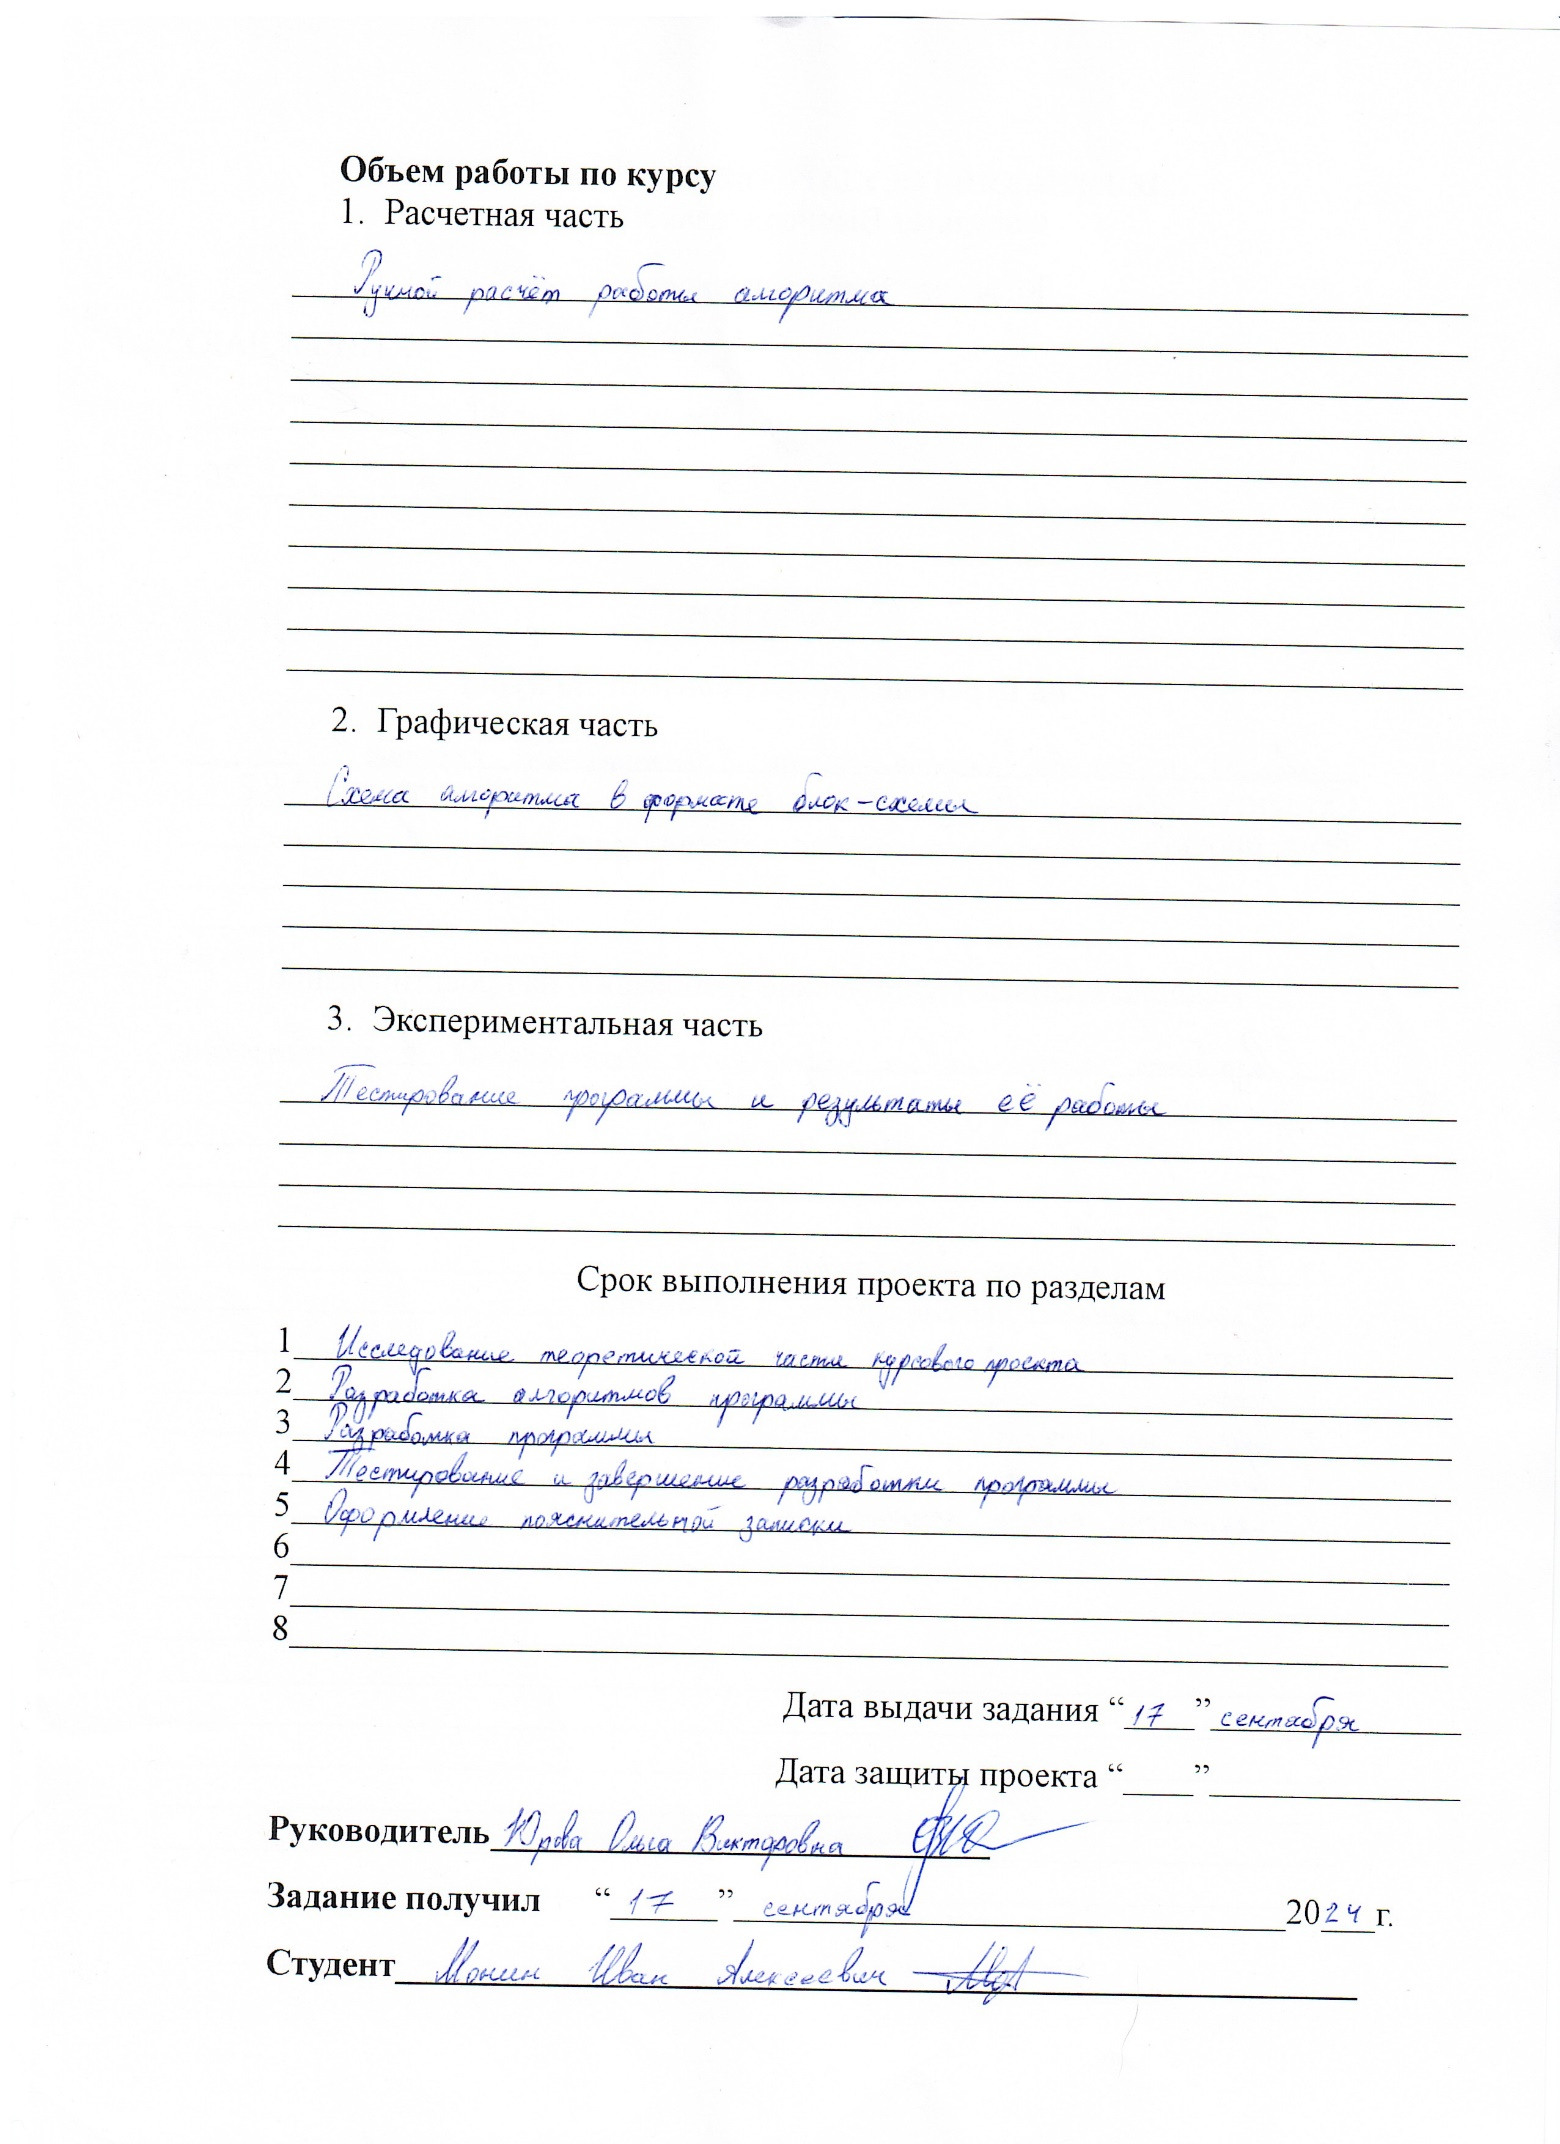 Объем работы по курсу
1. Расчетная часть
Ручной расчёт работы алгоритма
2. Графическая часть
Схема алгоритма в формате блок-схемы
3. Экспериментальная часть
Тестирование программы и результаты её работы
Срок выполнения проекта по разделам
1 Исследование теоретической части курсового проекта
2 Разработка алгоритмов программы
3 Разработка программы
4 Тестирование и завершение разработки программы
5 Оформление пояснительной записки
6
7
8
Дата выдачи задания “17” сентября
Дата защиты проекта “____”
Руководитель Юрова Ольга Викторовна
Задание получил “17” сентября 2024 г.
Студент Монин Иван Алексеевич